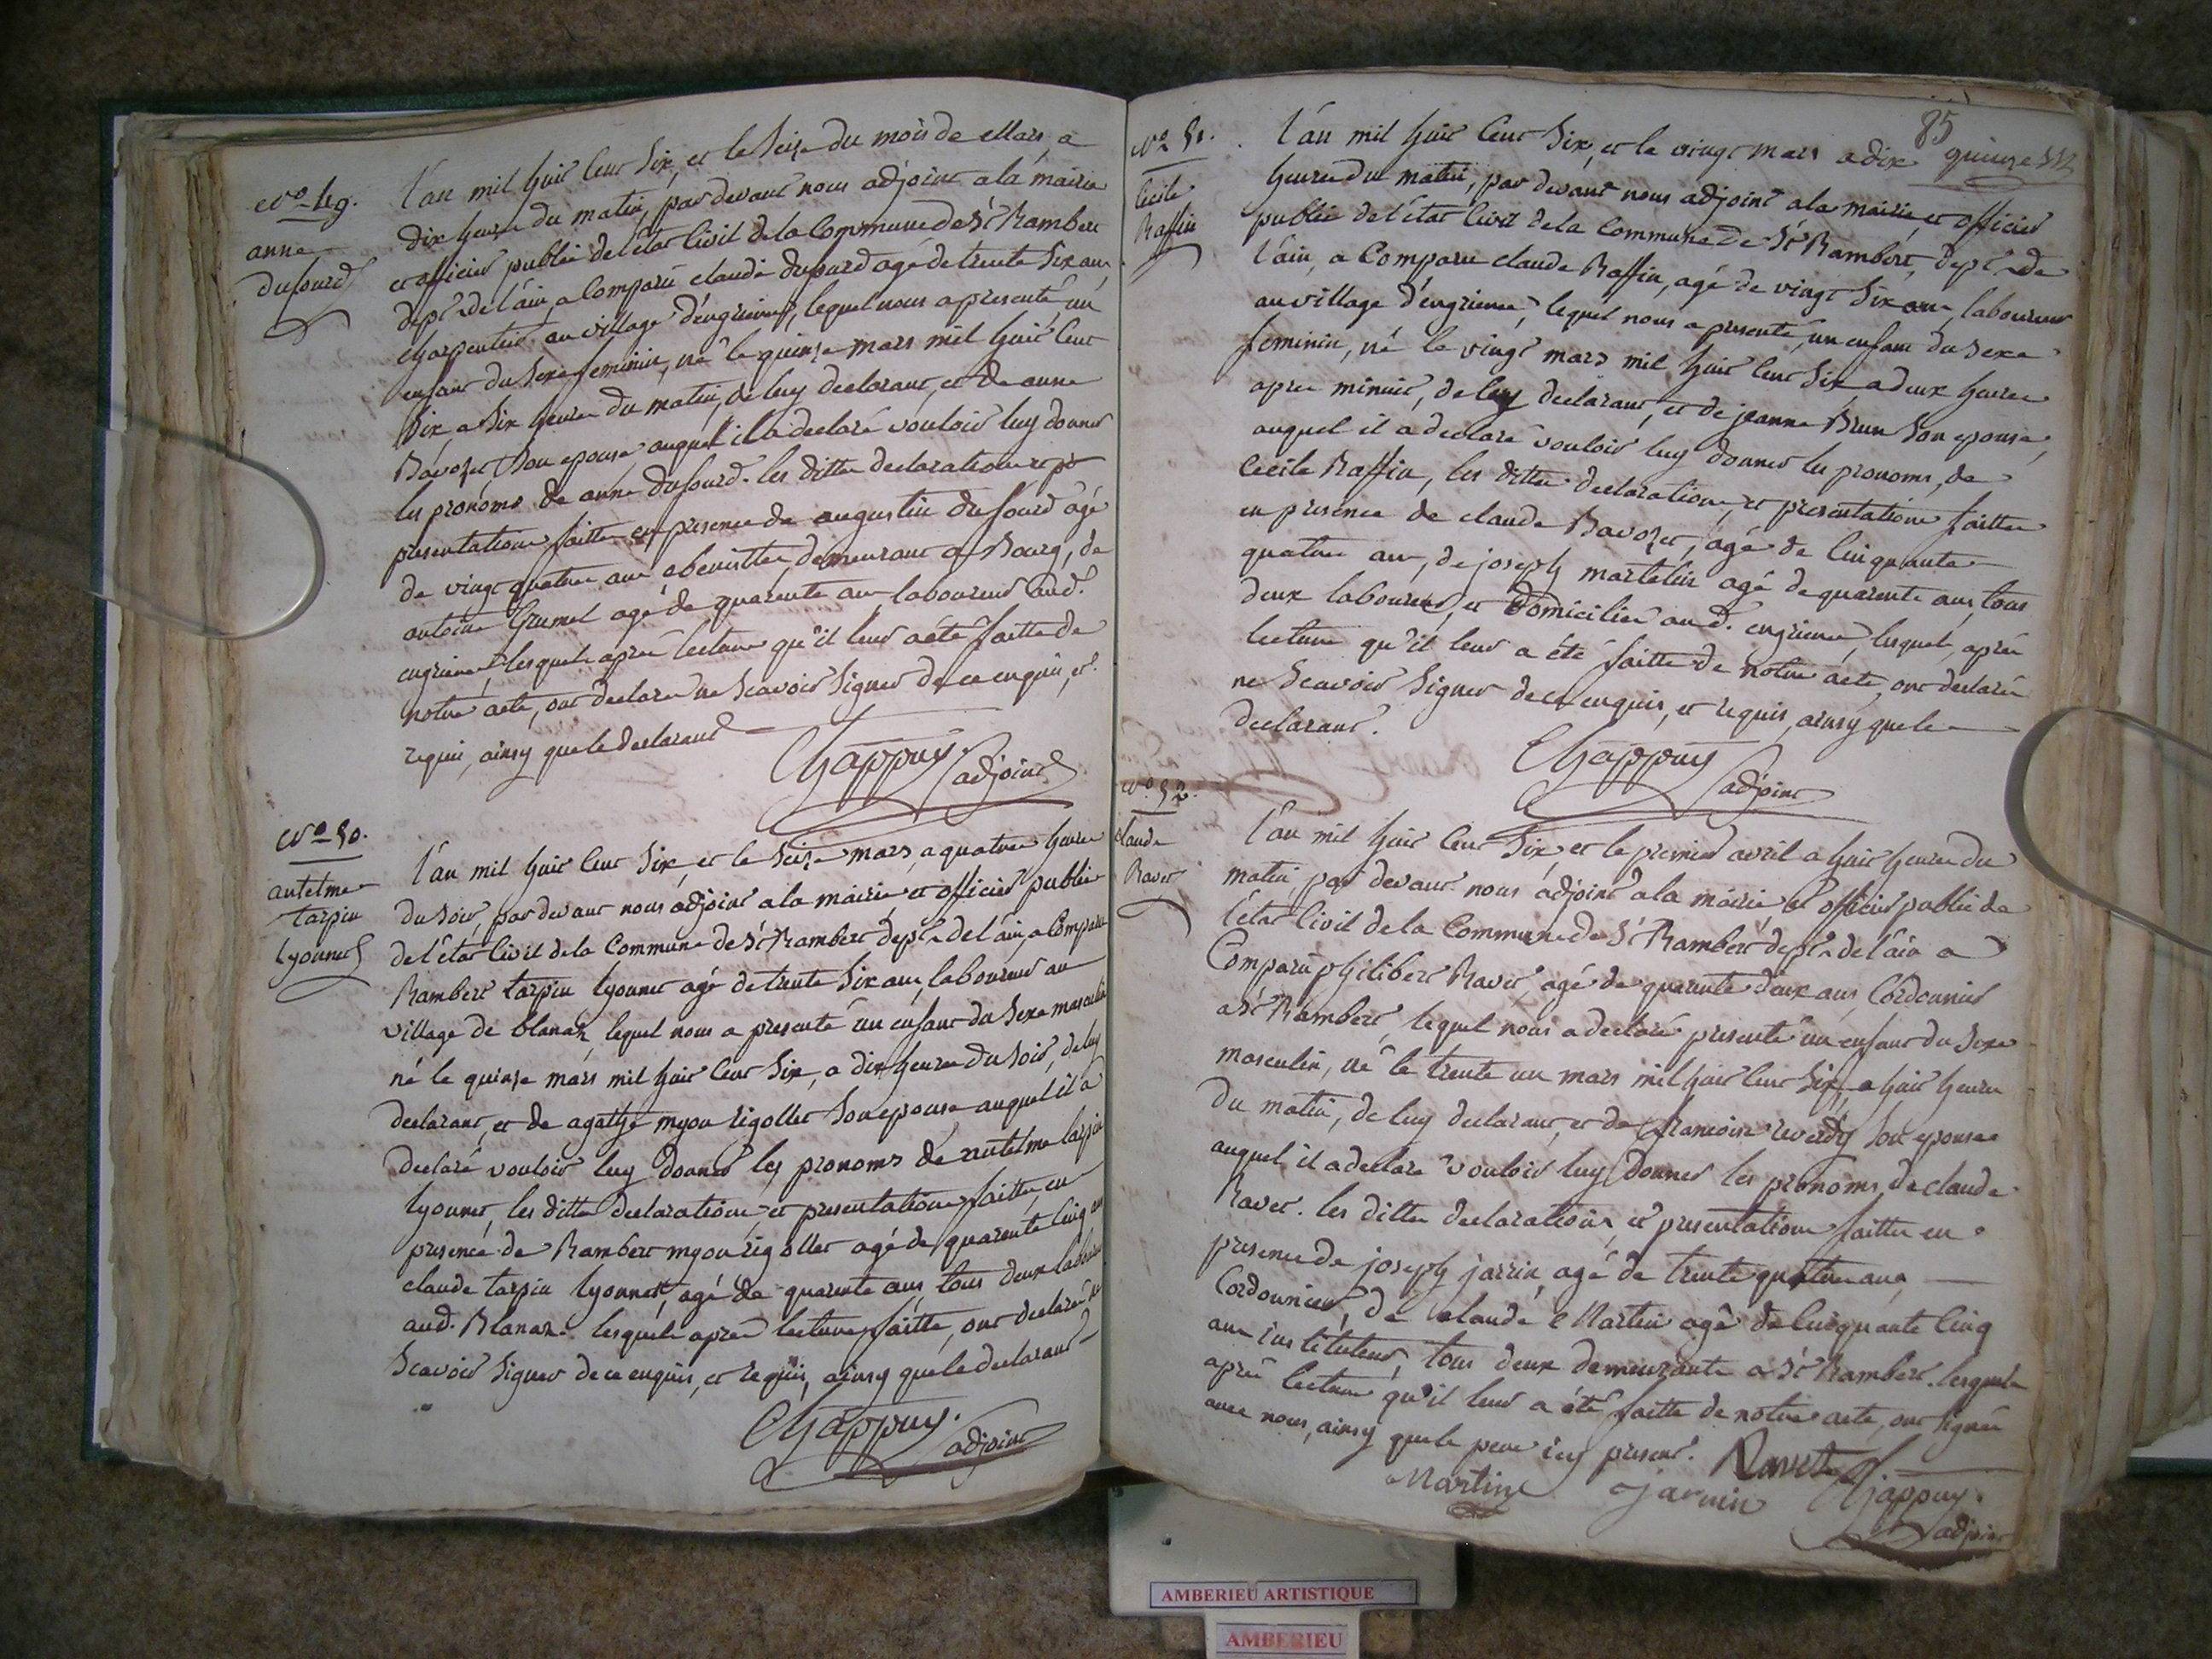 No 49.
anne
dufourd
l'an mil huit cent six, et le seize du mois de Mars, a
dix heures du matin, par devant nous adjoint a la mairie
et officier public de l'état Civil de la Commune de St Rambert
dept de l'ain, a Comparu claude dufourd agé de trente six ans
charpentier au village d'engrieux, lequel nous a presenté un
enfant du sexe feminin, né le quinze mars mil huit cent
six, a six heures du matin, de luy declarant, et de anne
Bavozet son epouse auquel il a declaré vouloir luy donner
les pronoms de anne dufourd. les dittes declarations et
presentations faittes en presence de augustin dufourd agé
de vingt quatre ans ebenistte, demeurant a Bourg, de
antoine Grumet agé de quarente ans laboureur aud.
engrieux, lesquels apres lecture qu'il leur a été faitte de
notre acte, ont declarés ne scavoir signer de ce enquis, et
requis, ainsy que le declarant
Chappuy adjoint
No 50.
antelme
tarpin
lyonnet
l'an mil huit cent six, et le seize mars, a quatre heures
du soir, par devant nous adjoint a la mairie et officier public
de l'état Civil de la Commune de St Rambert dept de l'ain, a Comparu
Rambert tarpin lyonnet agé de trente six ans, laboureur au
village de blanaz, lequel nous a presenté un enfant du sexe masculin
né le quinze mars mil huit cent six, a dix heures du soir, de luy
declarant, et de agathe myon rigollet son epouse auquel il a
declaré vouloir luy donner les pronoms de antelme tarpin
lyonnet, les dittes declarations, et presentations faittes, en
presence de Rambert myon rigollet agé de quarente cinq ans
claude tarpin lyonnet, agé de quarente ans, tous deux laboureurs
aud. Blanaz. lesquels apres lecture faitte, ont declarés ne
scavoir signer de ce enquis, et requis, ainsy que le declarant
Chappuy.
adjoint
85
No 51.
Cecile
Raffin
l'an mil huit Cent Six, et le vingt mars a dix
heures du matin, par devant nous adjoint a la mairie, et officier
public de l'état Civil de la Commune de St Rambert, dept de
l'ain, a Comparu claude Raffin, agé de vingt six ans, laboureur
au village d'engrieux, lequel nous a presenté, un enfant du sexe
feminin, né le vingt mars mil huit cent six, a deux heures
apres minuit, de luy declarant, et de jeanne Brun son epouse,
auquel il a declaré vouloir luy donner les pronoms, de
Cecile Raffin, les dittes declarations, et presentations faittes
en presence de claude Bavozet, agé de Cinquante
quatre ans, de joseph martelin agé de quarente ans, tous
deux laboureurs, et domiciliés aud. engrieux, lesquels, apres
lecture qu'il leur a été faitte de notre acte, ont declarés
ne scavoir signer de ce enquis, et requis, ainsy que le
declarant.
Chappuy
adjoint
No 52.
claude
Ravet
l'an mil huit Cent Six, et le premier avril a huit heures du
matin, par devant nous adjoint a la mairie et officier public de
l'état Civil de la Commune de St Rambert dept de l'ain a
Comparu philibert Ravet, agé de quarente deux ans, Cordonnier
a St Rambert, lequel nous a declaré presenté un enfant du sexe
masculin, né le trente un mars mil huit cent six, a huit heures
du matin, de luy declarant, et de francoise reverdy son epouse
auquel il a declaré vouloir luy donner les pronoms de claude
Ravet. les dittes declarations, et presentations faittes en
presence de joseph jarrin, agé de trente quatre ans,
Cordonnier, de claude Martin agé de cinquante cinq
ans instituteur, tous deux demeurants a St Rambert. lesquels
apres lecture qu'il leur a été faitte de notre acte, ont signés
avec nous, ainsy que le pere icy present. Ravet
Martin jarrin Chappuy.
adjoint
AMBERIEU ARTISTIQUE
AMBERIEU